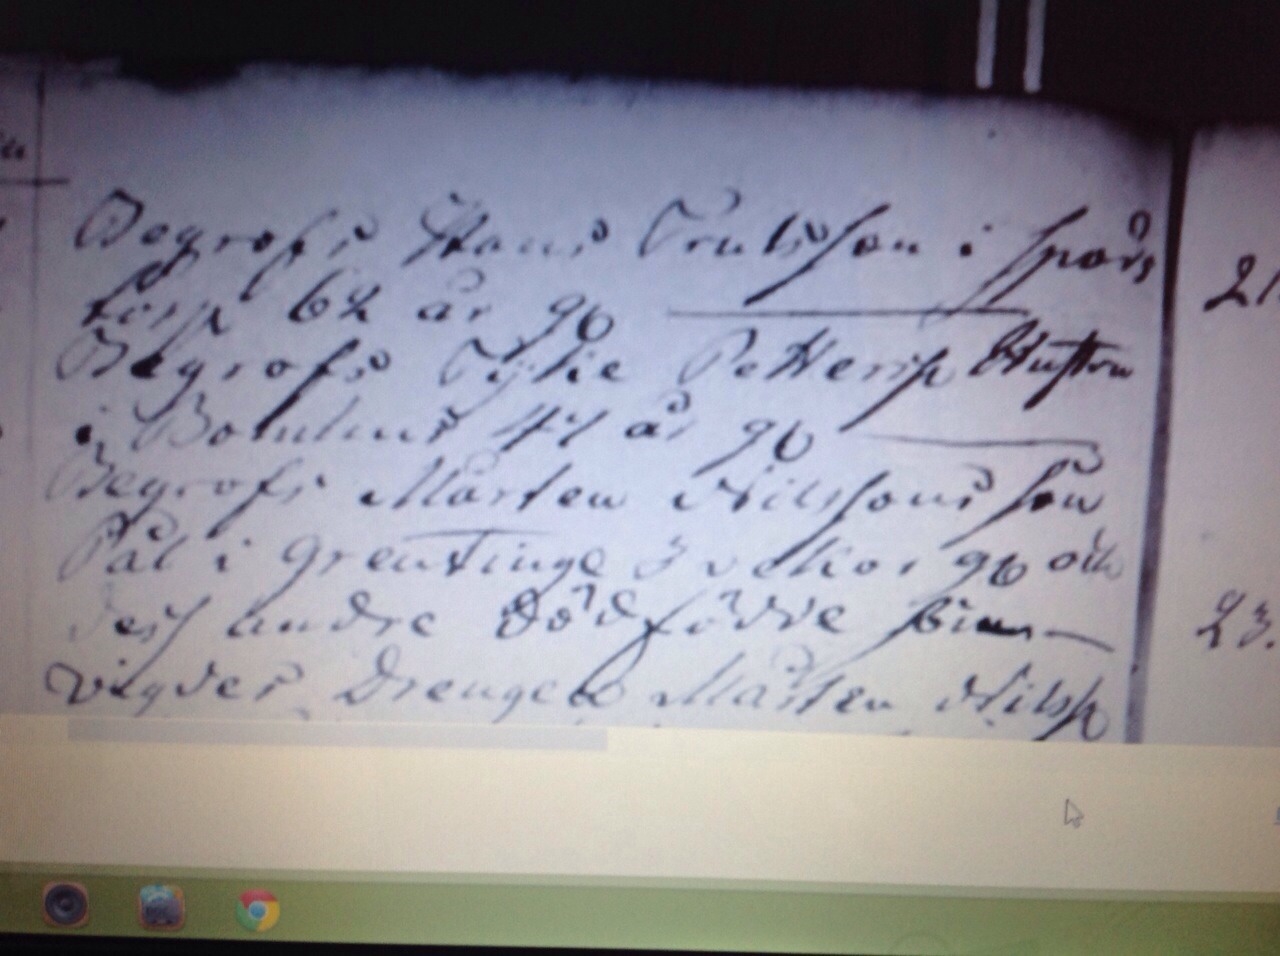 Begrofs Hans Trulsson i Spårs
torp 62 år gb
Begrofs Sissie Pettersp Hustru
i Bomhus 47 år gb
Begrofs Mårten Nilssons son
Pål i Grentinge 3 vekor gb och
des andre dödfödde
vigdes Drengen Mårten Nilssp
21
23.